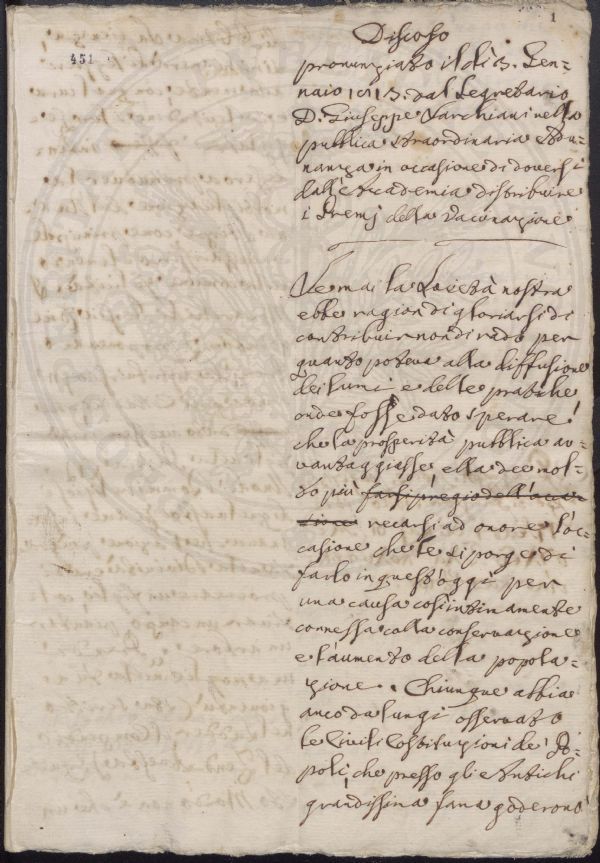 1
451
Discorso
pronunziato il dì 3. Gen-
naio 1813. dal Segretario
D. Giuseppe Sarchiani nella
pubblica straordinaria Adu-
nanza in occasione di doversi
dall'Accademia distribuire
i Premj della Vacinazione
Se mai la Società nostra
ebbe ragion di gloriarsi di
contribuir non di rado per
quanto poteva alla diffusione
dei lumi e delle pratiche
onde fosse dato sperare
che la prosperità pubblica av-
vantaggiasse ella dee mol-
to più farsi pregio dell'occa-
sione recarsi ad onore l'oc-
casione che le si porge di
farlo in quest'oggi per
una causa così intimamente
connessa colla conservazione
e l'aumento della popola-
zione. Chiunque abbia
anco da lungi osservato
le Civili Costituzioni de' Po-
poli che presso gli Antichi
grandissima fama goderono